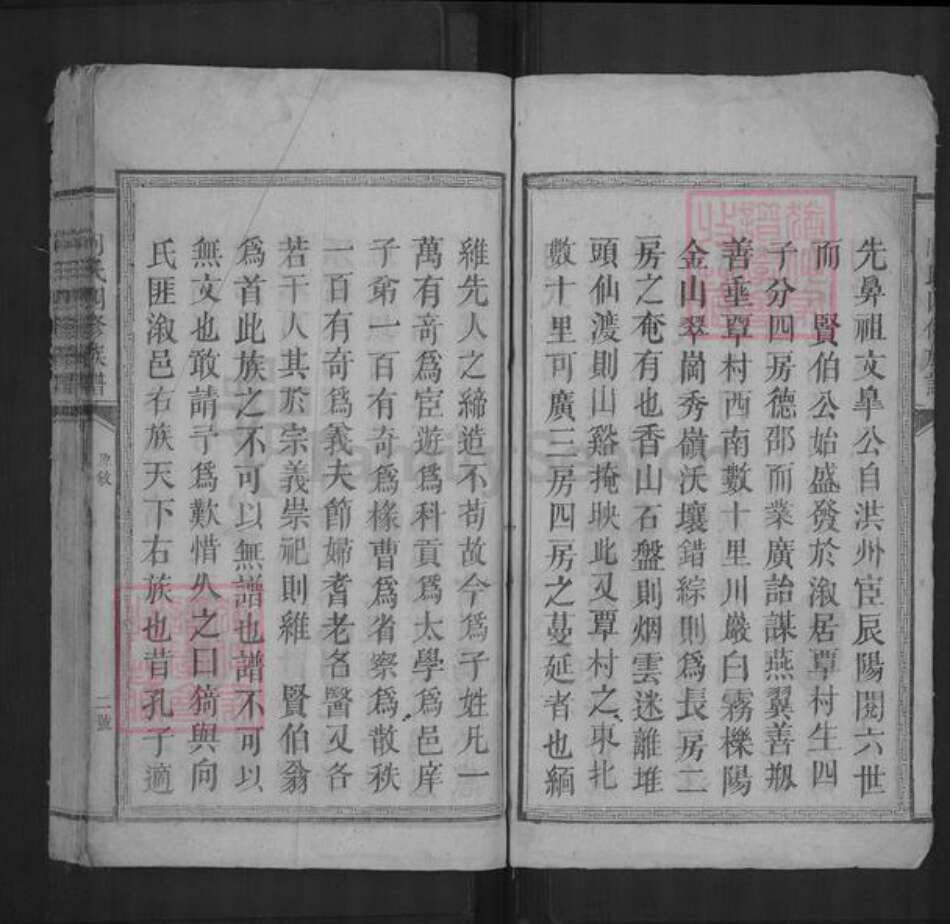 先鼻祖文臯公自洪州宦辰陽閱六世
而　賢伯公始盛發於溆居覃村生四
子分四房德邵而業廣詒謀燕翼善刱
善垂覃村西南數十里川巖白霧櫟陽
金山翠崗秀嶺沃壤錯綜則爲長房二
房之奄有也香山石盤則烟雲迷離堆
頭仙渡則山谿掩映此又覃村之東北
數十里可廣三房四房之蔓延者也緬
維先人之締造不苟故今爲子姓凡一
萬有奇爲宦遊爲科貢爲太學爲邑庠
子弟一百有奇爲椽曹爲省察爲散秩
一百有奇爲義夫節婦耆老名醫又各
若干人其於宗義崇祀則維　賢伯翁
爲首此族之不可以無譜也譜不可以
無文也敢請予爲歎惜久之曰猗與向
氏匪溆邑右族天下右族也昔孔子適
氏四修族譜
二號